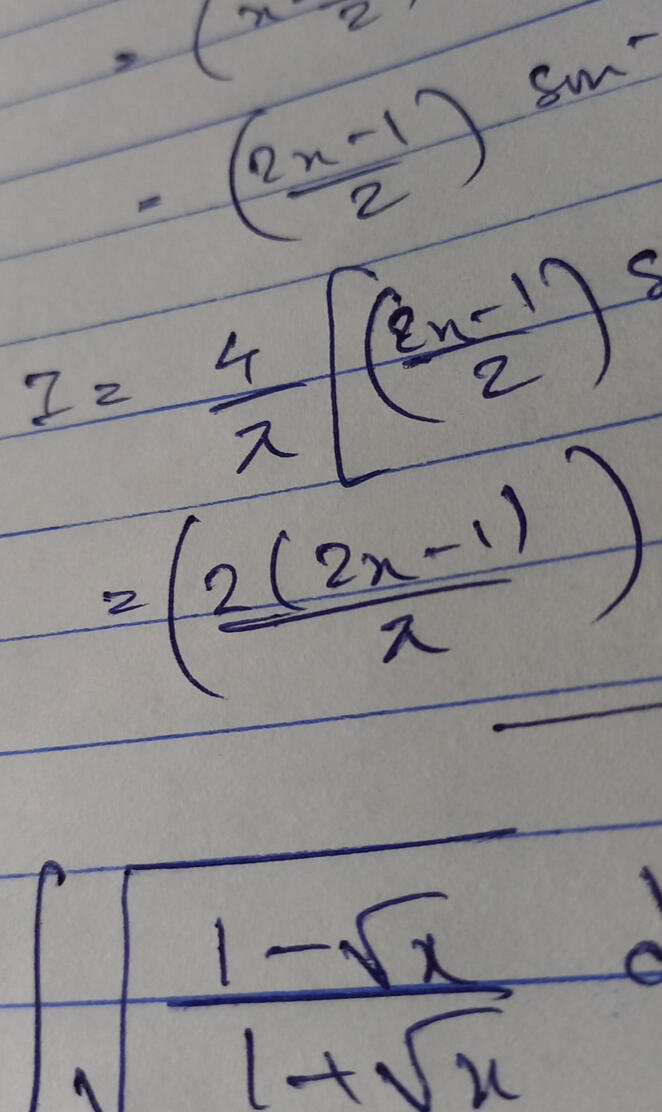 = (x
= (2x-1)/2 sin-
I = 4/π [(2x-1)/2
= (2(2x-1)/π)
∫√(1-√x)/(1+√x) d